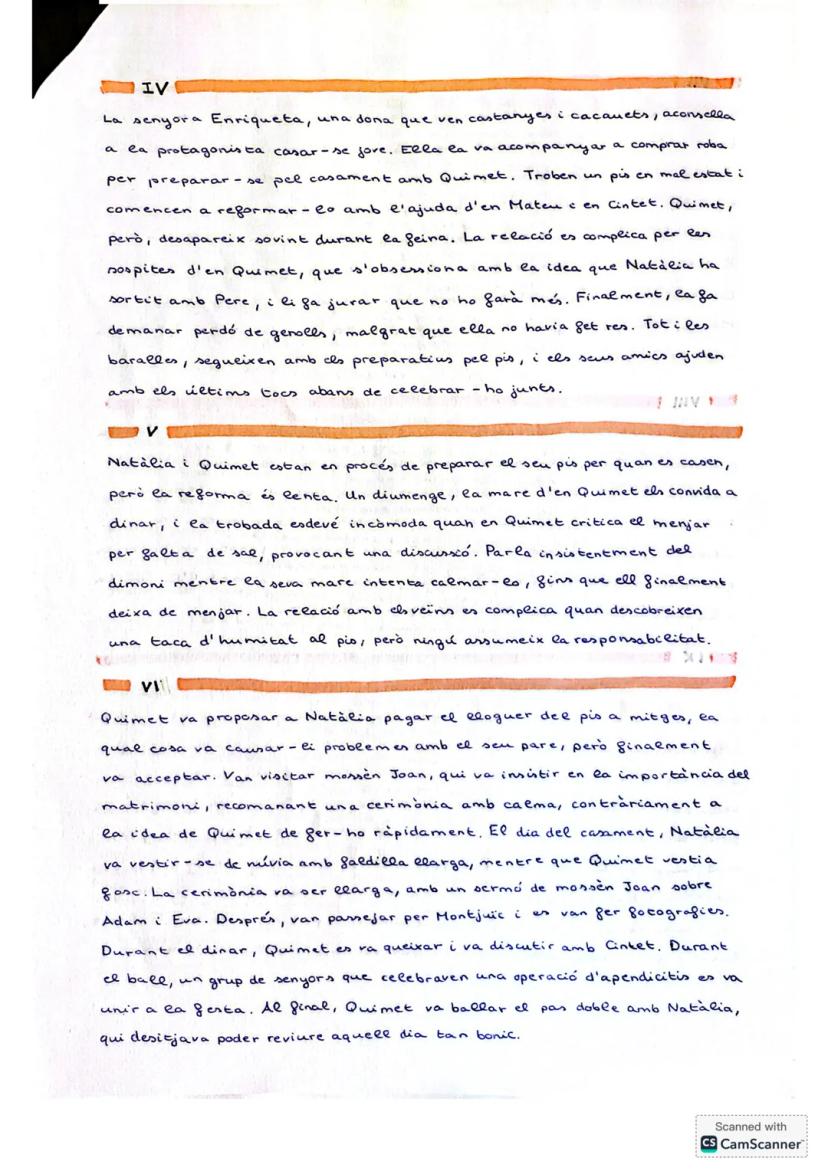 IV
La senyora Enriqueta, una dona que ven castanyes i cacauets, aconsella
a la protagonista casar-se jove. Ella la va acompanyar a comprar roba
per preparar-se pel casament amb Quimet. Troben un pis en mal estat i
comencen a reformar-lo amb l'ajuda d'en Mateu i en Cintet. Quimet,
però, desapareix sovint durant la feina. La relació es complica per les
sospites d'en Quimet, que s'obsessiona amb la idea que Natàlia ha
sortit amb Pere, i li fa jurar que no ho farà més. Finalment, la fa
demanar perdó de genolls, malgrat que ella no havia fet res. Tot i les
baralles, segueixen amb els preparatius pel pis, i els seus amics ajuden
amb els últims tocs abans de celebrar-ho junts.
V
Natàlia i Quimet estan en procés de preparar el seu pis per quan es casen,
però la reforma és lenta. Un diumenge, la mare d'en Quimet els convida a
dinar, i la trobada esdevé incòmoda quan en Quimet critica el menjar
per falta de sal, provocant una discussió. Parla insistentment del
dimoni mentre la seva mare intenta calmar-lo, fins que ell finalment
deixa de menjar. La relació amb els veïns es complica quan descobreixen
una taca d'humitat al pis, però ningú assumeix la responsabilitat.
VI
Quimet va proposar a Natàlia pagar el lloguer del pis a mitges, la
qual cosa va causar-li problemes amb el seu pare, però finalment
va acceptar. Van visitar mossèn Joan, qui va insistir en la importància del
matrimoni, recomanant una cerimònia amb calma, contràriament a
la idea de Quimet de fer-ho ràpidament. El dia del casament, Natàlia
va vestir-se de núvia amb faldilla llarga, mentre que Quimet vestia
fosc. La cerimònia va ser llarga, amb un sermó de mossèn Joan sobre
Adam i Eva. Després, van passejar per Montjuïc i es van fer fotografies.
Durant el dinar, Quimet es va queixar i va discutir amb Cintet. Durant
el ball, un grup de senyors que celebraven una operació d'apendicitis es va
unir a la festa. Al final, Quimet va ballar el pas doble amb Natàlia,
qui desitjava poder reviure aquell dia tan bonic.
Scanned with
CS CamScanner